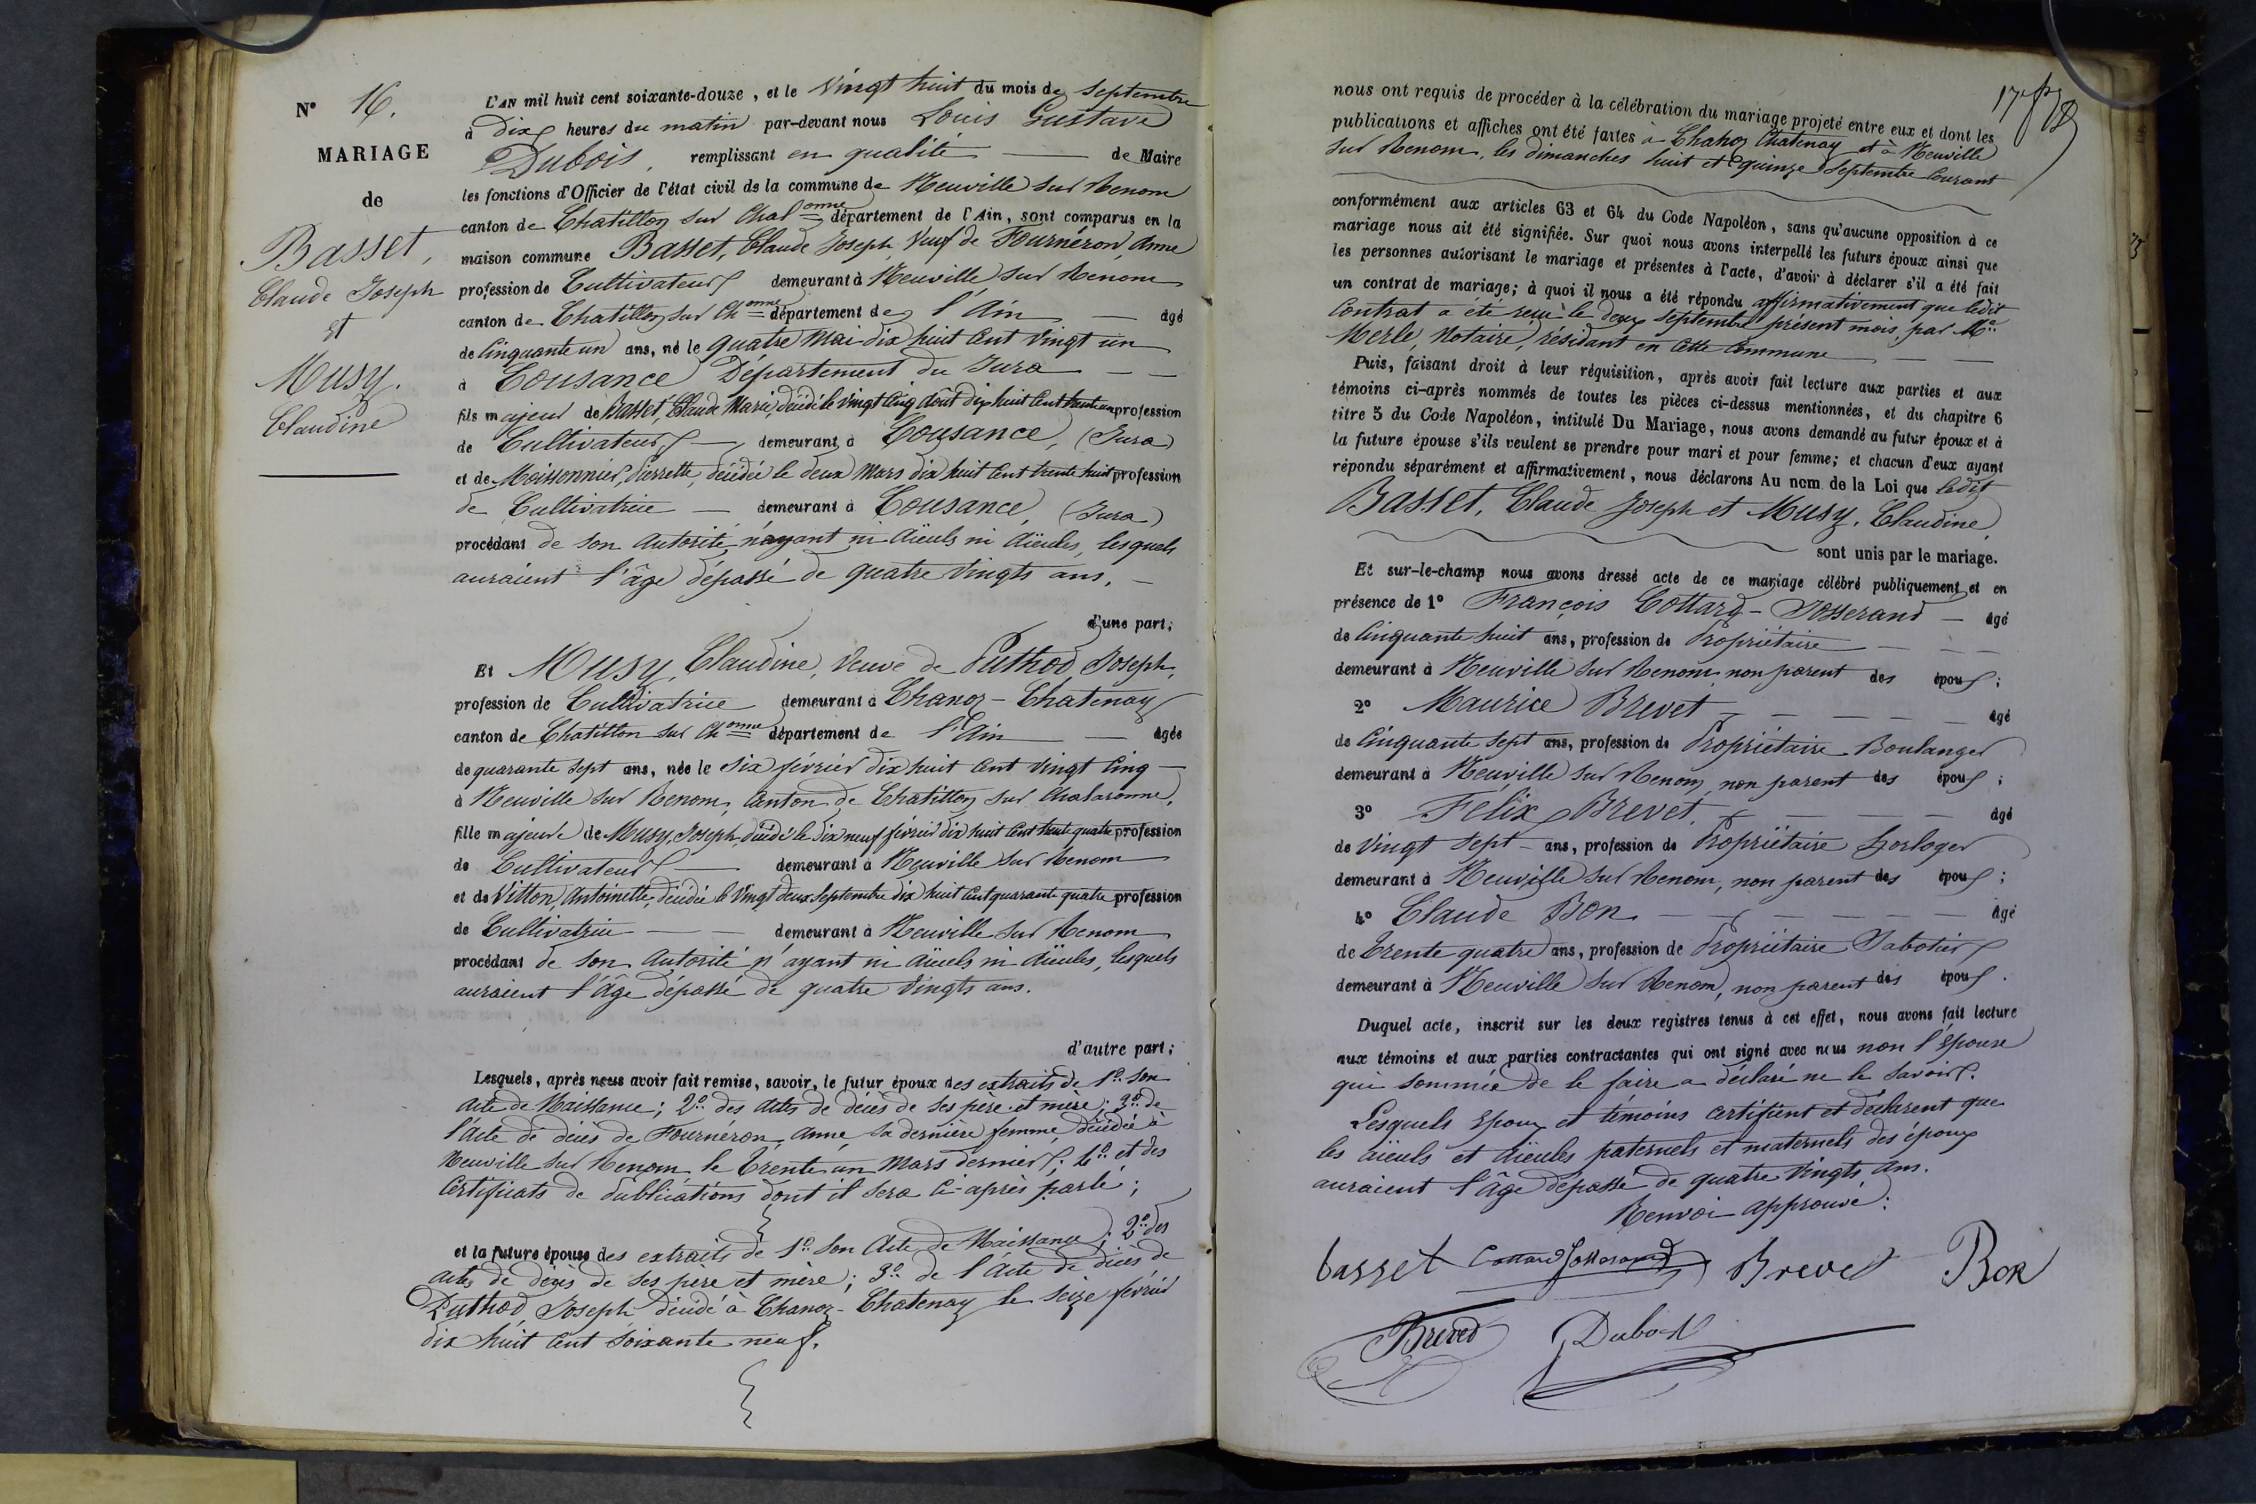 N° 16.
MARIAGE
de
Basset,
Claude Joseph
et
Musy.
Claudine
L'AN mil huit cent soixante-douze, et le Vingt huit du mois de Septembre
à Dix heures du matin par-devant nous Louis Gustave
Dubois, remplissant en qualité — de Maire
les fonctions d'Officier de l'état civil de la commune de Neuville sur Renom
canton de Chatillon sur Chalonne département de l'Ain, sont comparus en la
maison commune Basset, Claude Joseph, Veuf de Fournéron, Anne
profession de Cultivateur demeurant à Neuville sur Renom
canton de Chatillon sur Chonne département de l'Ain — âgé
de Cinquante un ans, né le quatre Mai dix huit Cent Vingt un
à Cousance Département du Jura — —
fils majeur de Basset, Claude Marie, décédé le Vingt Cinq Août dix huit Cent trente un profession
de Cultivateur — demeurant à Cousance, (Jura)
et de Moissonnier, Pierrette, décédée le deux Mars dix huit Cent trente huit profession
de Cultivatrice — demeurant à Cousance, (Jura)
procédant de son Autorité, n'ayant ni Aïeuls ni Aïeules, lesquels
auraient l'âge dépassé de quatre Vingts ans. —
d'une part;
Et Musy, Claudine, Veuve de Puthod Joseph,
profession de Cultivatrice demeurant à Chanoz-Chatenay
canton de Chatillon sur Chonne département de l'Ain — âgée
de quarante sept ans, née le Six février dix huit Cent Vingt Cinq —
à Neuville sur Renom, Canton de Chatillon sur Chalaronne,
fille majeure de Musy, Joseph, décédé le dix neuf février dix huit Cent trente quatre profession
de Cultivateur — demeurant à Neuville sur Renom
et de Vitton, Antoinette, décédée le Vingt deux Septembre dix huit Cent quarante quatre profession
de Cultivatrice — — demeurant à Neuville sur Renom
procédant de son Autorité n'ayant ni Aïeuls ni Aïeules, lesquels
auraient l'Âge dépassé de quatre Vingts ans.
d'autre part;
Lesquels, après nous avoir fait remise, savoir, le futur époux des extraits de 1° Son
Acte de Naissance; 2° des Actes de décès de ses père et mère; 3° de
l'Acte de décès de Fournéron, Anne, Sa dernière femme, décédée à
Neuville sur Renom le Trente un Mars dernier; 4° et des
Certificats de Publications dont il sera Ci-après parlé;
et la future épouse des extraits de 1° Son Acte de Naissance; 2° des
actes de décès de ses père et mère; 3° de l'Acte de décès de
Puthod Joseph décédé à Chanoz-Chatenay le Seize février
dix huit Cent Soixante neuf.
17e
nous ont requis de procéder à la célébration du mariage projeté entre eux et dont les
publications et affiches ont été faites à Chanoz Chatenay et à Neuville
sur Renom, les dimanches huit et quinze Septembre Courant
conformément aux articles 63 et 64 du Code Napoléon, sans qu'aucune opposition à ce
mariage nous ait été signifiée. Sur quoi nous avons interpellé les futurs époux ainsi que
les personnes autorisant le mariage et présentes à l'acte, d'avoir à déclarer s'il a été fait
un contrat de mariage; à quoi il nous a été répondu affirmativement que ledit
Contrat a été reçu le deux Septembre présent mois, par Me
Merle, Notaire, résidant en Cette Commune — —
Puis, faisant droit à leur réquisition, après avoir fait lecture aux parties et aux
témoins ci-après nommés de toutes les pièces ci-dessus mentionnées, et du chapitre 6
titre 5 du Code Napoléon, intitulé Du Mariage, nous avons demandé au futur époux et à
la future épouse s'ils veulent se prendre pour mari et pour femme; et chacun d'eux ayant
répondu séparément et affirmativement, nous déclarons Au nom de la Loi que ledit
Basset, Claude Joseph et Musy, Claudine,
sont unis par le mariage.
Et sur-le-champ nous avons dressé acte de ce mariage célébré publiquement et en
présence de 1° François Cottard-Josserand — âgé
de Cinquante huit ans, profession de Propriétaire — — —
demeurant à Neuville sur Renom, non parent des époux;
2° Maurice Brevet — — — — — âgé
de Cinquante Sept ans, profession de Propriétaire Boulanger
demeurant à Neuville sur Renom, non parent des époux;
3° Félix Brevet, — — — — — âgé
de Vingt Sept — ans, profession de Propriétaire horloger
demeurant à Neuville sur Renom, non parent des époux;
4° Claude Bon — — — — — — âgé
de Trente quatre ans, profession de Propriétaire Sabotier
demeurant à Neuville sur Renom, non parent des époux.
Duquel acte, inscrit sur les deux registres tenus à cet effet, nous avons fait lecture
aux témoins et aux parties contractantes qui ont signé avec nous non l'Épouse
qui Sommée de le faire a déclaré ne le Savoir.
Lesquels Époux et témoins certifient et déclarent que
les aïeuls et Aïeules paternels et maternels des époux
auraient l'Âge dépassé de quatre Vingts Ans.
Renvoi approuvé:
basset Cottard Josserand Brevet Bon
Brevet Dubois